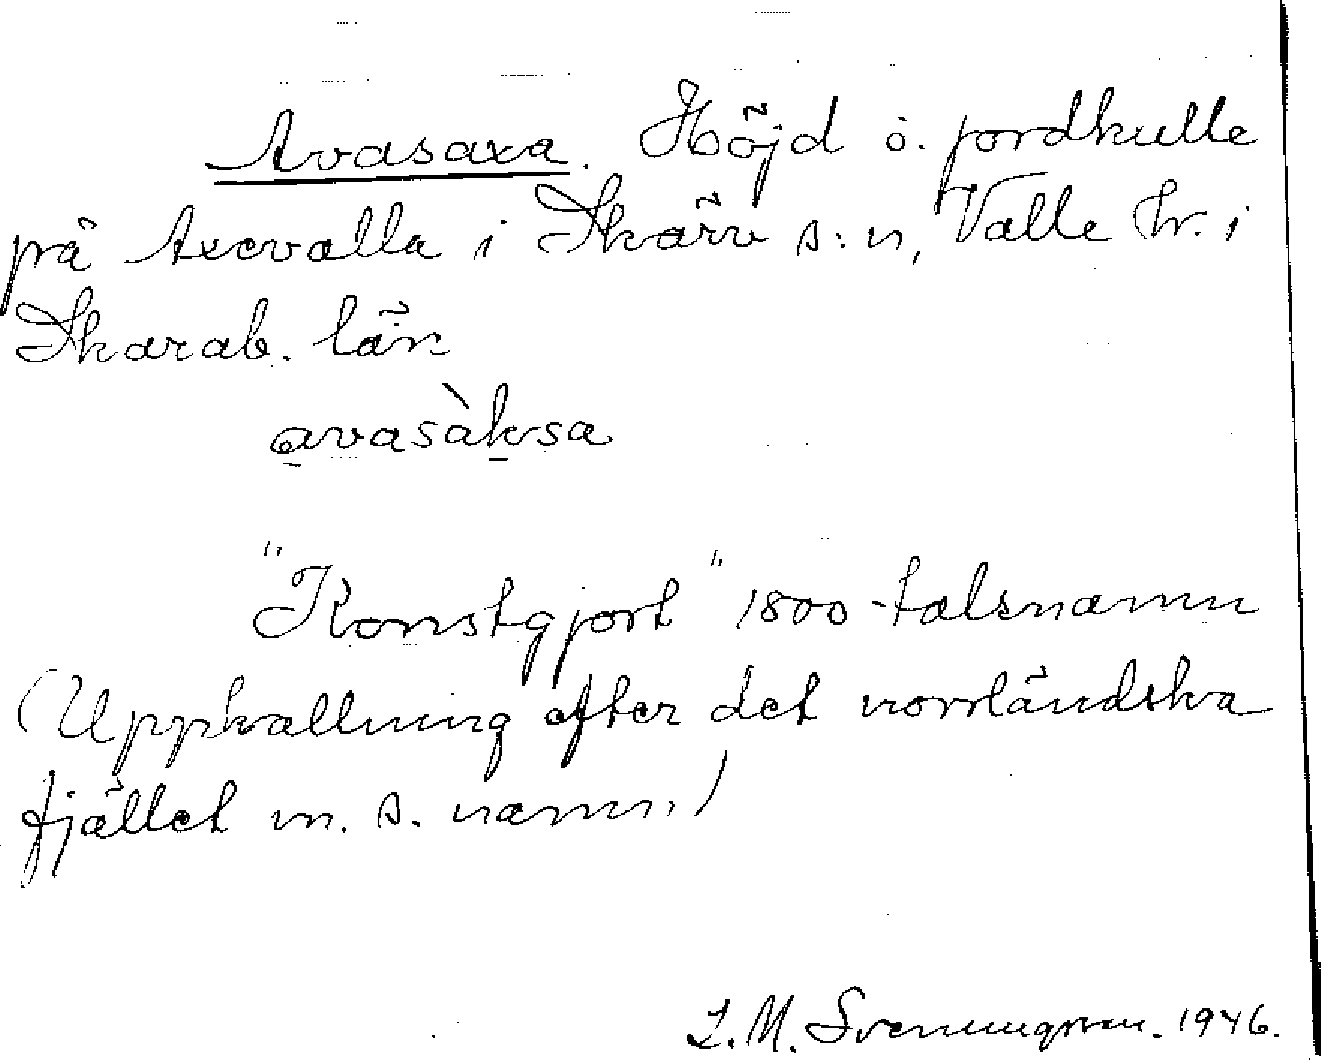 Avasaxa. Höjd o. jordkulle
på Axevalla i Skärv s:n, Valle hr. i
Skarab. län
avasàksa
"Konstgjort" 1800-talsnamn
(Uppkallning efter det norrländska
fjället m. s. namn.)
I. M. Svenungsson. 1946.